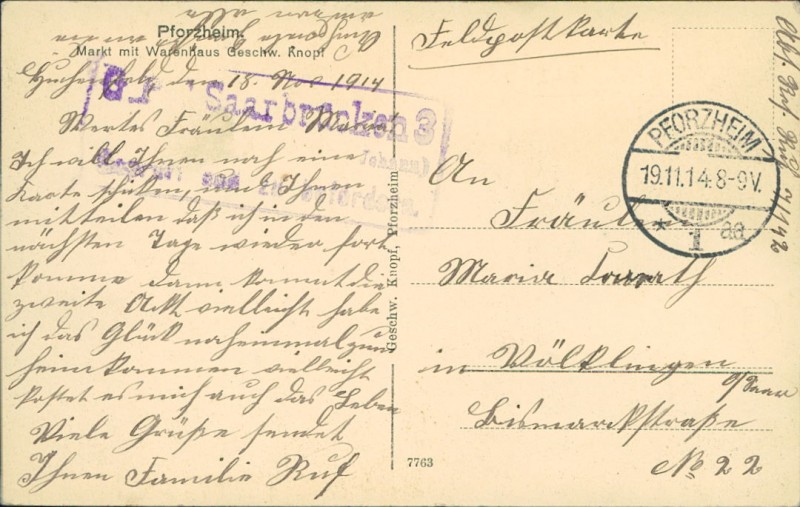 Pforzheim.
Markt mit Warenhaus Geschw. Knopf
Huchenfeld den 18. Nov 1914
Wertes Fräulein Maria
Ich will Ihnen noch eine
Karte schicken, und Ihnen
mitteilen daß ich in den
nächsten Tage wieder fort
komme dann kommt die
zweite Akt vielleicht habe
ich das Glück noheinmal zum
heimkommen vielleicht
kostet es mich auch das Leben
Viele Grüße sendet
Ihnen Familie Ruf
Saarbrücken 3
Geschw. Knopf, Pforzheim
7763
Feldpostkarte
PFORZHEIM
19.11.14.8-9V.
* 1 aa
An
Fräulein
Maria
in Völklingen
a/Saar
Bismarckstraße
No 22